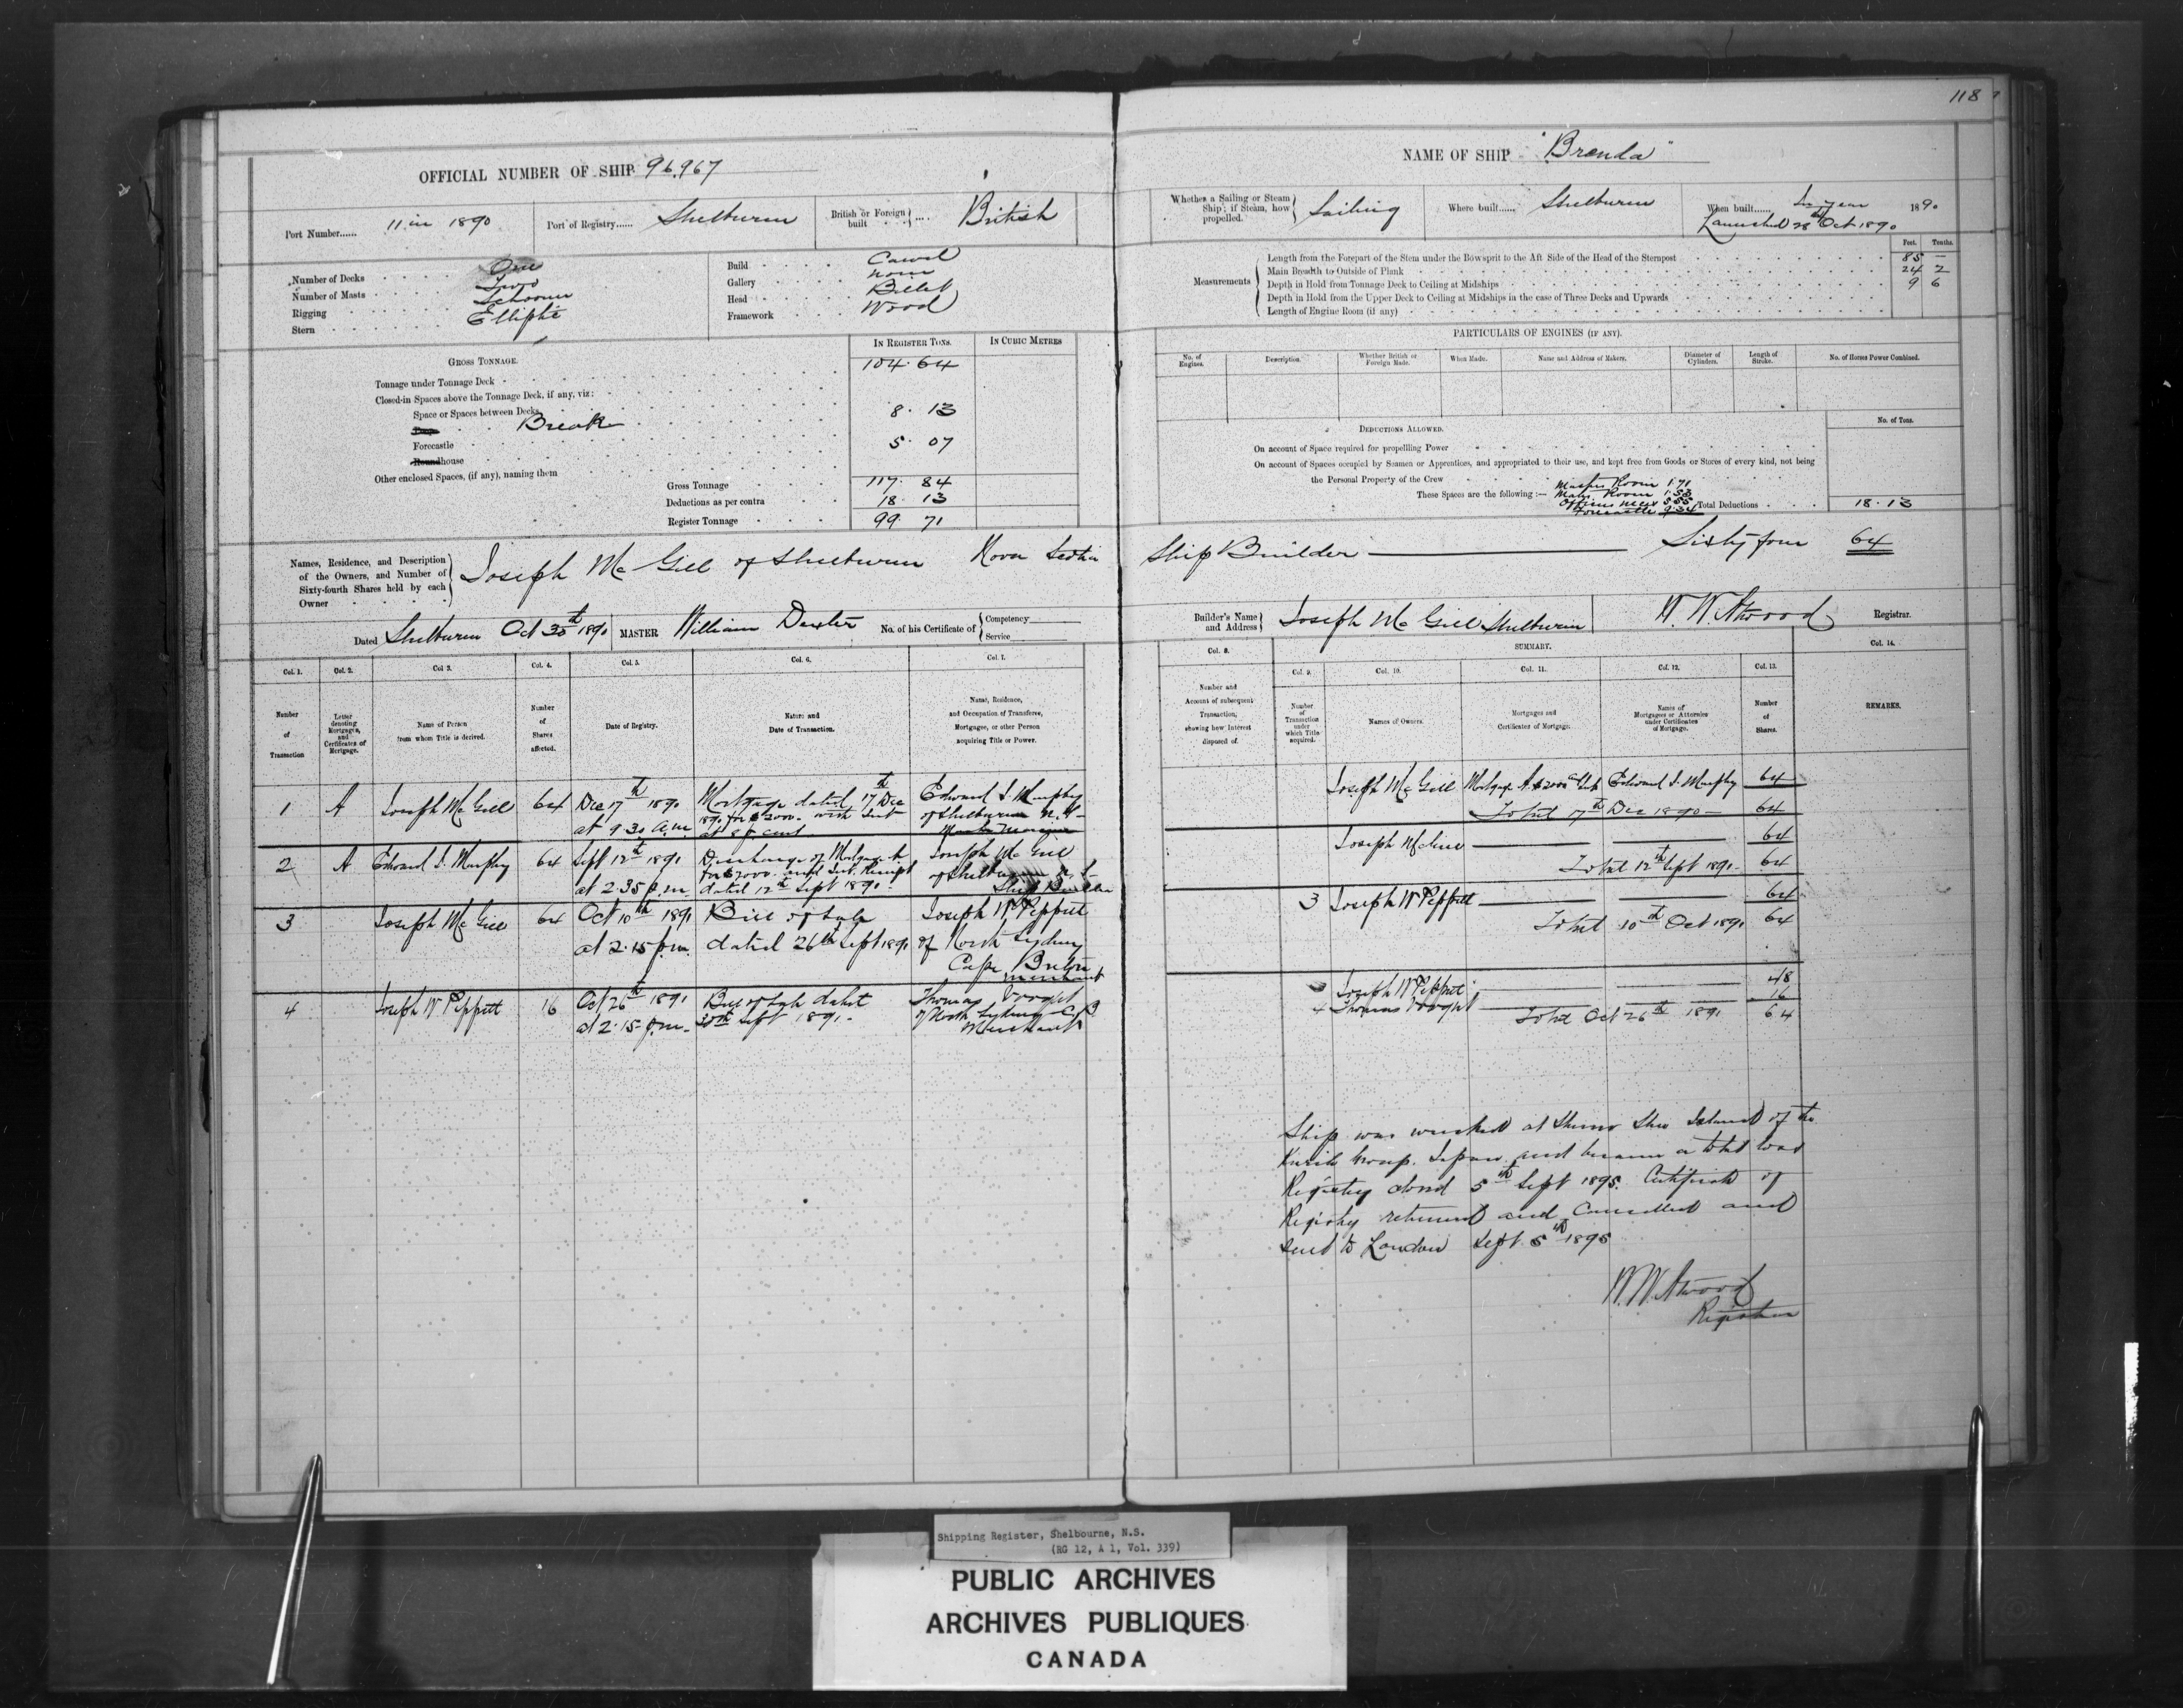 118
OFFICIAL NUMBER OF SHIP 96,967
NAME OF SHIP "Brenda"
Port Number...... 11 in 1890
Port of Registry...... Shelburne
British or Foreign built .... British
Whether a Sailing or Steam Ship; if Steam, how propelled. Sailing
Where built...... Shelburne
When built...... In year 1890
Launched 28th Oct 1890
Number of Decks One
Number of Masts Two
Rigging Schooner
Stern Elliptic
Build Carvel
Gallery none
Head Billet
Framework Wood
Measurements
Feet. Tenths.
Length from the Forepart of the Stem under the Bowsprit to the Aft Side of the Head of the Sternpost 85 —
Main Breadth to Outside of Plank 24 2
Depth in Hold from Tonnage Deck to Ceiling at Midships 9 6
Depth in Hold from the Upper Deck to Ceiling at Midships in the case of Three Decks and Upwards
Length of Engine Room (if any)
GROSS TONNAGE.
IN REGISTER TONS.
IN CUBIC METRES
Tonnage under Tonnage Deck 104.64
Closed-in Spaces above the Tonnage Deck, if any, viz:
Space or Spaces between Decks
Break 8.13
Forecastle 5.07
Roundhouse
Other enclosed Spaces, (if any), naming them
Gross Tonnage 117.84
Deductions as per contra 18.13
Register Tonnage 99.71
PARTICULARS OF ENGINES (IF ANY).
No. of Engines.
Description.
Whether British or Foreign Made.
When Made.
Name and Address of Makers.
Diameter of Cylinders.
Length of Stroke.
No. of Horses Power Combined.
DEDUCTIONS ALLOWED.
No. of Tons.
On account of Space required for propelling Power
On account of Spaces occupied by Seamen or Apprentices, and appropriated to their use, and kept free from Goods or Stores of every kind, not being
the Personal Property of the Crew
These Spaces are the following :—
Masters Room 1.71
Mates Room 1.53
Officers mess 5.55
Forecastle 9.34
Total Deductions 18.13
Names, Residence, and Description of the Owners, and Number of Sixty-fourth Shares held by each Owner
Joseph McGill of Shelburne Nova Scotia Ship Builder — Sixty four 64
Dated Shelburne Oct 30th 1890
MASTER William Dexter
No. of his Certificate of Competency Service
Builder's Name and Address Joseph McGill Shelburne
W. W. Atwood Registrar.
Col. 1.
Number of Transaction
Col. 2.
Letter denoting Mortgages, and Certificates of Mortgage.
Col 3.
Name of Person from whom Title is derived.
Col. 4.
Number of Shares affected.
Col. 5.
Date of Registry.
Col. 6.
Nature and Date of Transaction.
Col. 7.
Name, Residence, and Occupation of Transferee, Mortgagee, or other Person acquiring Title or Power.
Col. 8.
Number and Account of subsequent Transaction, showing how Interest disposed of.
SUMMARY.
Col. 9.
Number of Transaction under which Title acquired.
Col. 10.
Names of Owners.
Col. 11.
Mortgages and Certificates of Mortgage.
Col. 12.
Names of Mortgagees or Attornies under Certificates of Mortgage.
Col. 13.
Number of Shares.
Col. 14.
REMARKS.
1 A Joseph McGill 64 Dec 17th 1890 at 9.30 a.m. Mortgage dated 17th Dec 1890 for $2000. with Int at 8 p cent Edward I. Murphy of Shelburne N.S.
2 A Edward I. Murphy 64 Sept 12th 1891 at 2.35 p.m. Discharge of Mortgage A for $2000. and Int. Receipt dated 12th Sept 1891. Joseph McGill of Shelburne N.S. Ship Builder
3 Joseph McGill 64 Oct 10th 1891 at 2.15 p.m. Bill of Sale dated 26th Sept 1891 Joseph W Peppett of North Sydney Cape Breton merchant
4 Joseph W Peppett 16 Oct 26th 1891 at 2.15 p.m. Bill of Sale dated 30th Sept 1891. Thomas Vooght of North Sydney C.B. Merchant
Joseph McGill Mortgage A $2000 Edward I. Murphy 64
Total 17th Dec 1890 — 64
Joseph McGill 64
Total 12th Sept 1891. 64
3 Joseph W Peppett 64
Total 10th Oct 1891 64
3 Joseph W Peppett 48
4 Thomas Vooght 16
Total Oct 26th 1891 64
Ship was wrecked at Shumo Shu Island of the
Kurile Group. Japan. and became a total loss
Registry closed 5th Sept 1895. Certificate of
Registry returned and Cancelled and
sent to London Sept 5th 1895
W. W. Atwood
Registrar
Shipping Register, Shelbourne, N.S.
(RG 12, A 1, Vol. 339)
PUBLIC ARCHIVES
ARCHIVES PUBLIQUES
CANADA